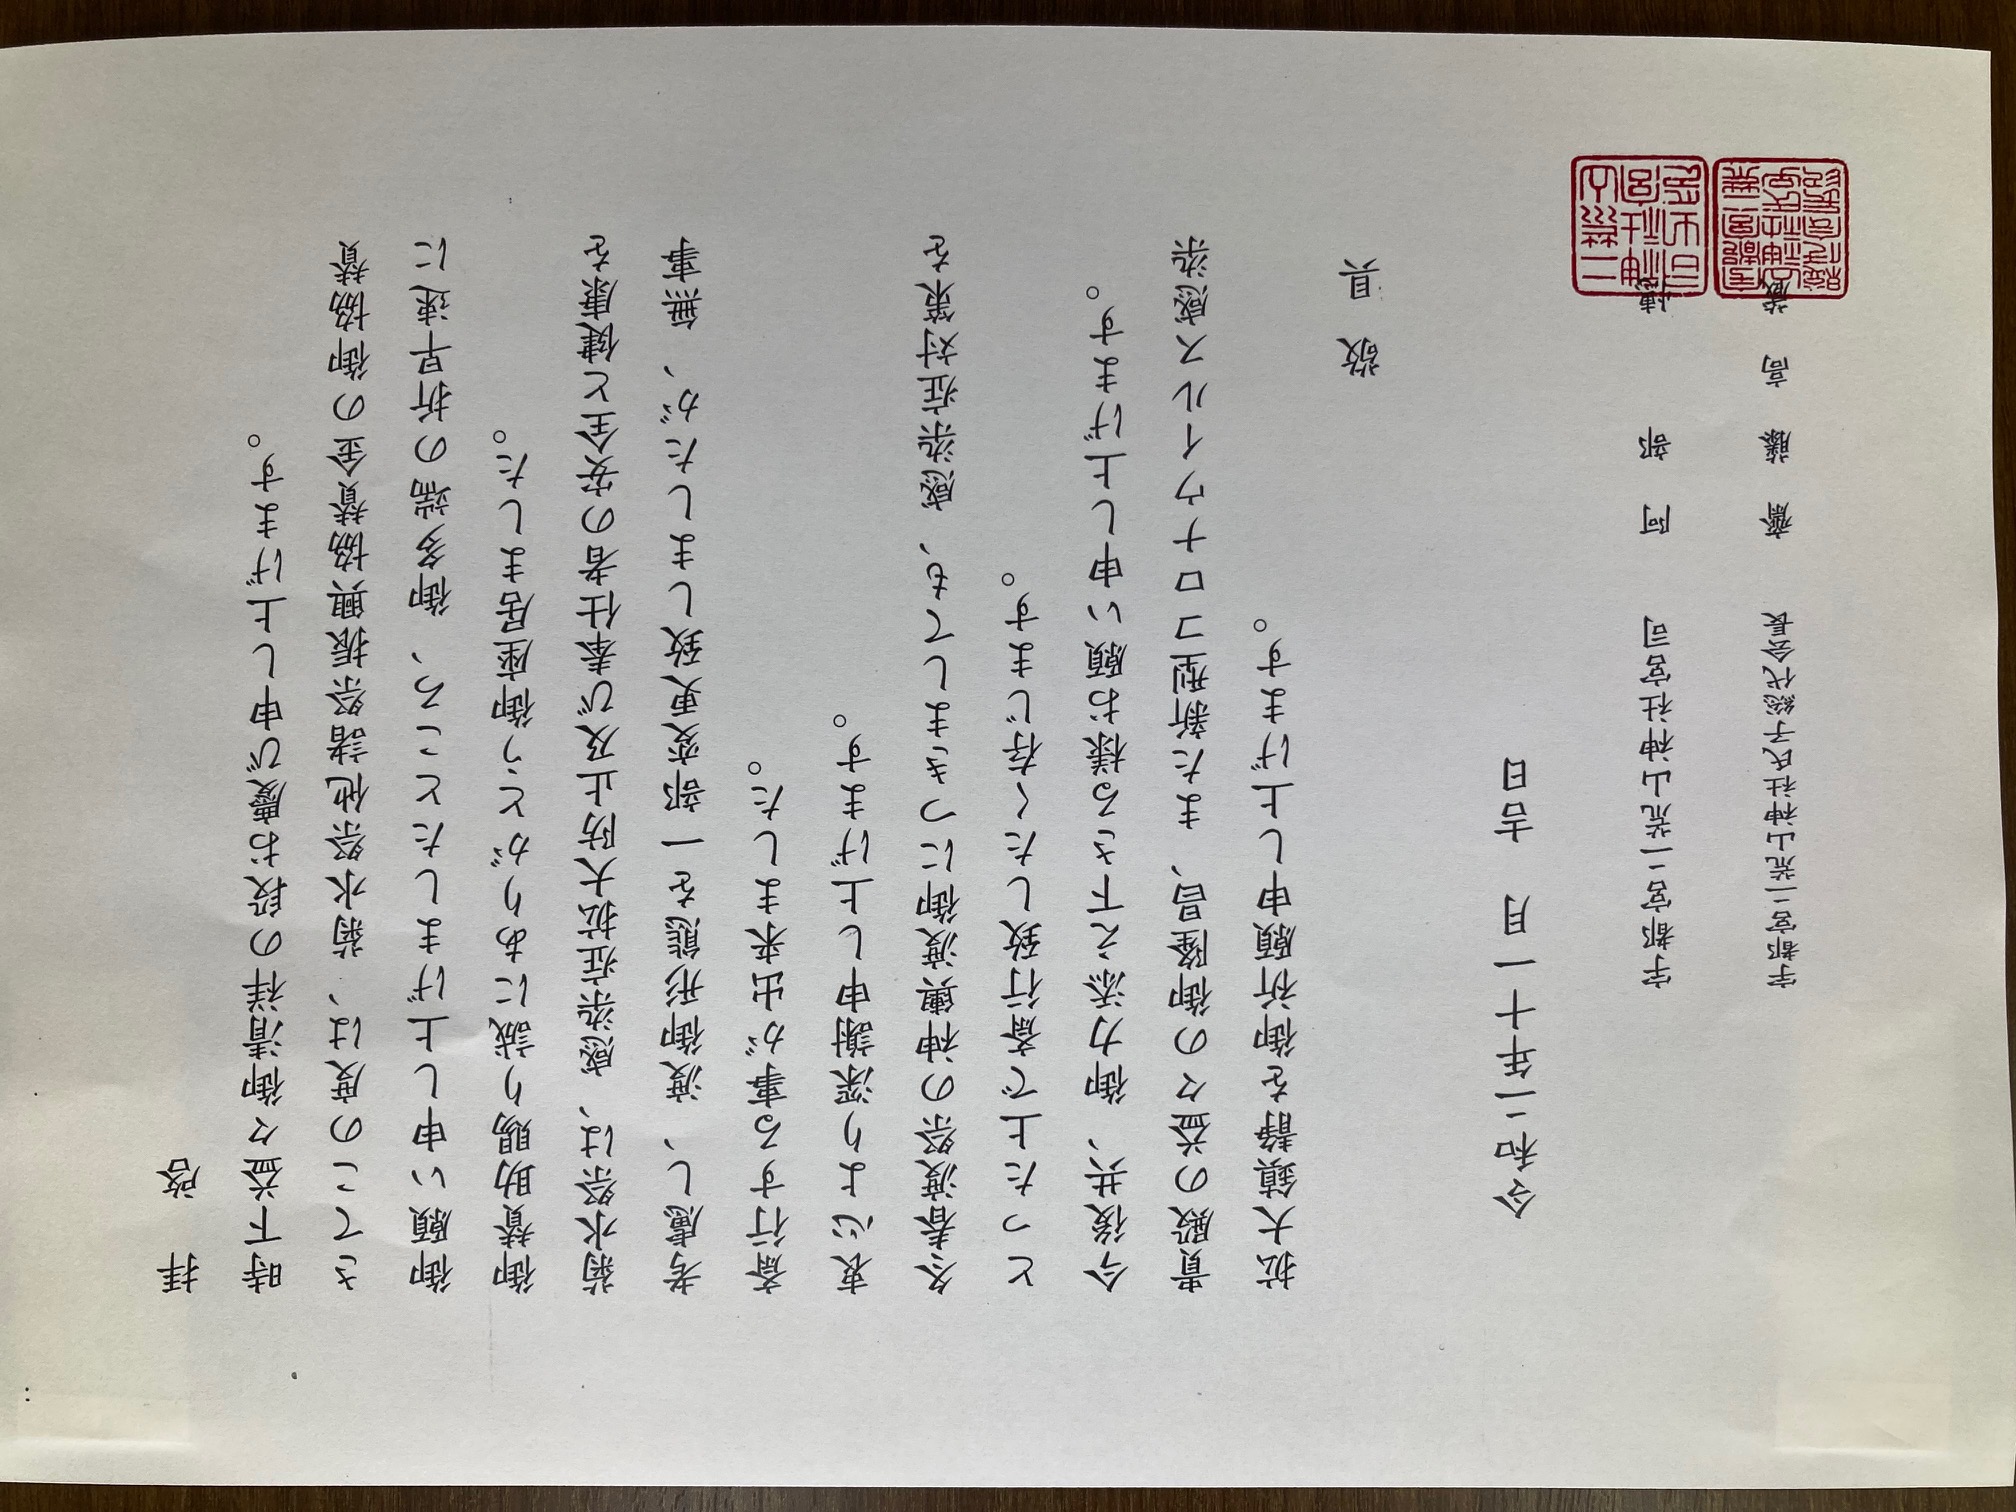 拝啓
時下益々御清祥の段お慶び申し上げます。
さてこの度は、菊水祭他諸祭振興協賛金の御協賛
御願い申し上げましたところ、御多端の折早速に
御賛助賜り誠にありがとう御座居ました。
菊水祭は、感染症拡大防止及び奉仕者の安全と健康を
考慮し、渡御形態を一部変更致しましたが、無事
斎行する事が出来ました。
衷心より深謝申し上げます。
冬春渡祭の神輿渡御につきましても、感染症対策を
とった上で斎行致したく存じます。
今後共、御力添え下さる様お願い申し上げます。
貴殿の益々の御隆昌、また新型コロナウイルス感染
拡大鎮静を御祈願申し上げます。
敬具
令和二年十一月吉日
宇都宮二荒山神社宮司 阿部
宇都宮二荒山神社氏子総代会長 齋藤高蔵